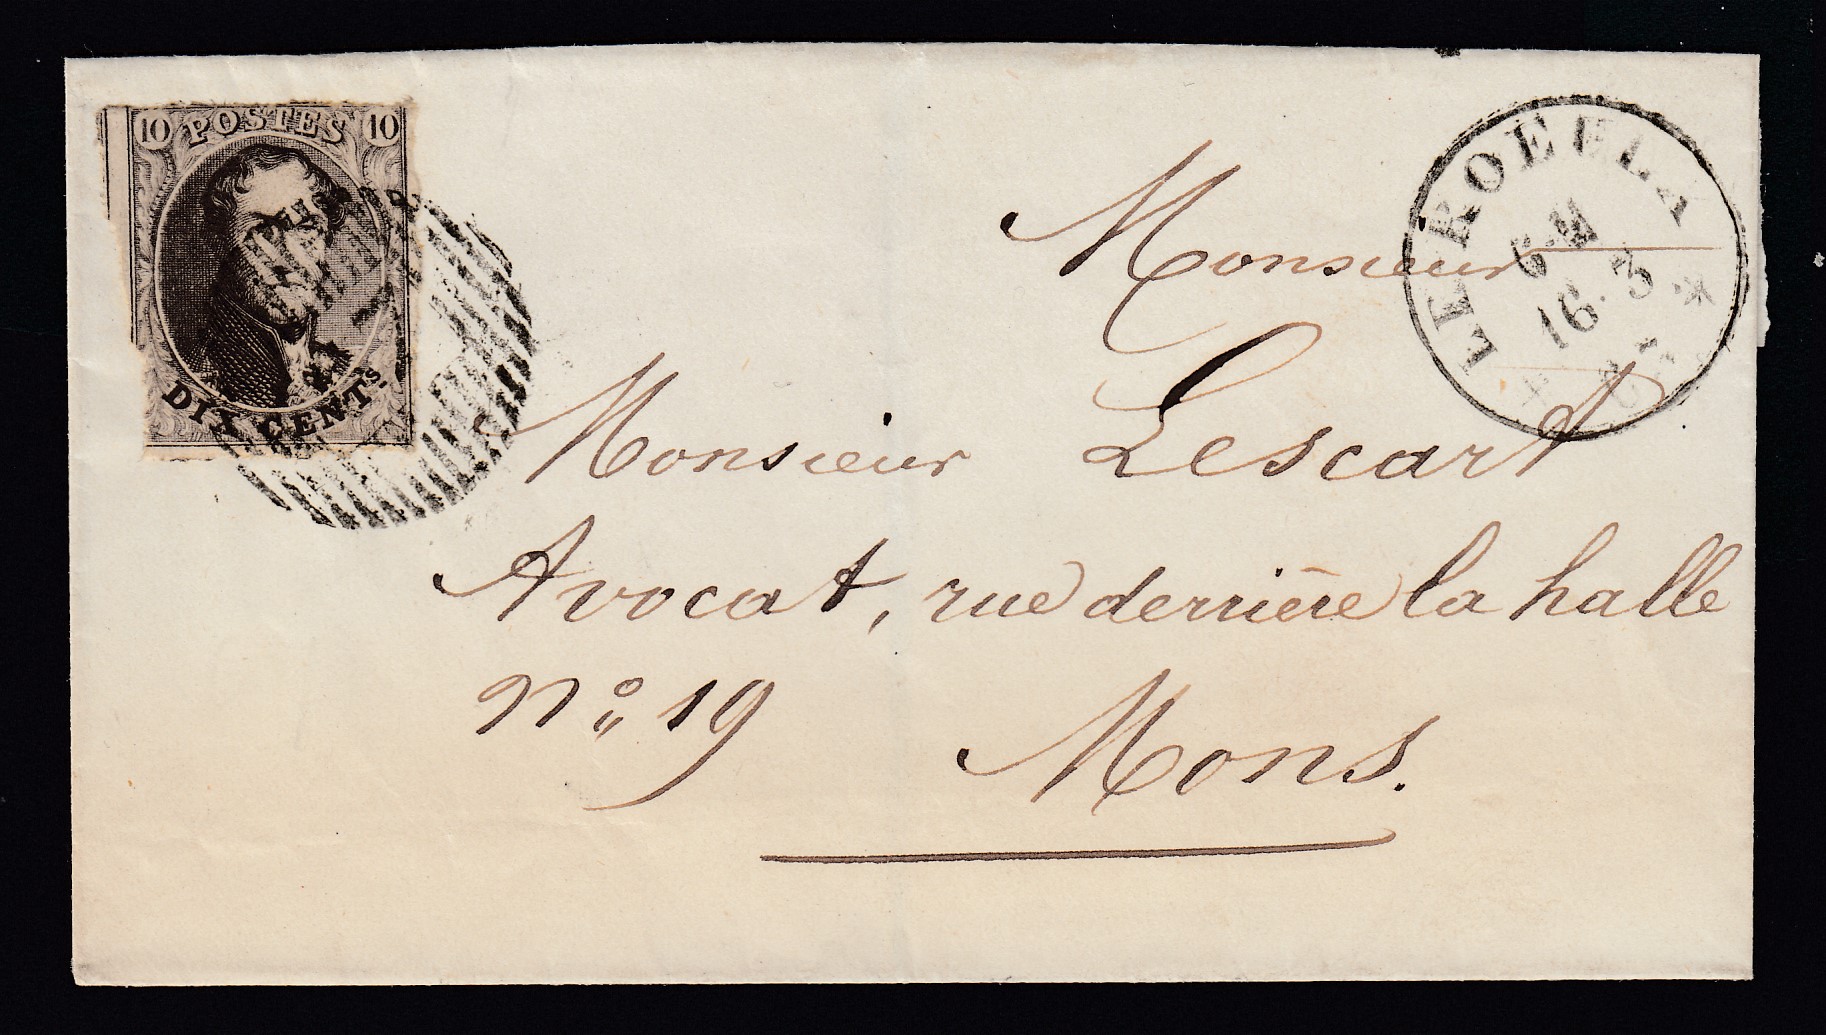 10 POSTES 10
DIX CENTs.
LE ROEULX
6-M
16·3
Monsieur
Monsieur Lescart
Avocat, rue derrière la halle
No 19 Mons.